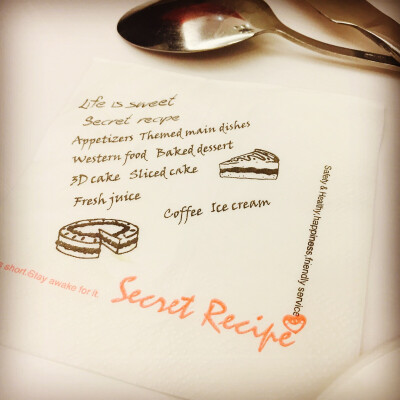 Life is sweet
Secret recipe
Appetizers Themed main dishes
Western food Baked dessert
3D cake Sliced cake
Fresh juice
Coffee Ice cream
Safety & Healthy,happiness,friendly service
short.Stay awake for it.
Secret Recipe